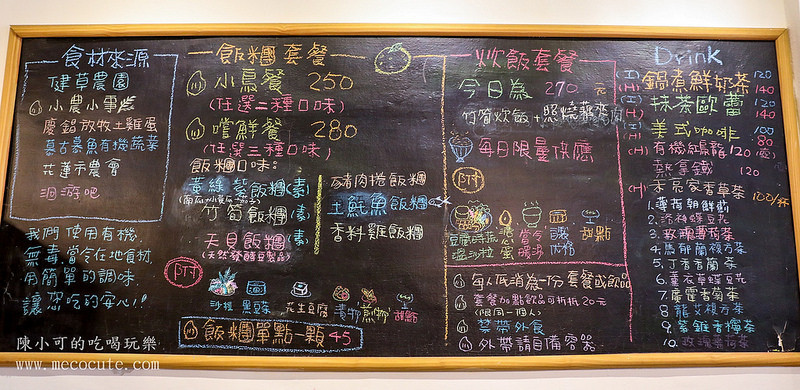 食材來源
健草農園
小農小事農
慶錩放牧土雞蛋
慕古慕魚有機蔬菜
花蓮市農會
洄游吧
我們使用有機
無毒當令在地食材
用簡單的調味
讓您吃的安心!!
飯糰套餐
小鳥餐 250
(任選二種口味)
嚐鮮餐 280
(任選三種口味)
飯糰口味:
紫飯糰(素)
竹筍飯糰(素)
天貝飯糰(素)
(天然發酵豆製品)
豬肉捲飯糰
土魠魚飯糰
香料雞飯糰
附
沙拉
黑豆漿
花生豆腐
漬物
煎物
甜點
飯糰單點一顆45
炊飯套餐
今日為 270 元
竹筍炊飯+照燒
每日限量供應
附
豆腐時蔬
溫沙拉
當令
暖湯
甜點
每人低消為一份套餐或飲品
套餐加點飲品可折抵20元
(限同一個人)
禁帶外食
外帶請自備容器
Drink
(I) 鍋煮鮮奶茶 120
(H) 140
(I) 抹茶歐蕾 120
(H) 140
(I) 美式咖啡 100
(H) 80
(H) 有機紅烏龍 120(壺)
熱拿鐵 120
(H) 本店家香草茶 100/杯
1.薄荷朝鮮薊
2.洛神蝶豆花
3.玫瑰薄荷茶
4.馬郁蘭複方茶
5.丁香香蘭茶
6.薰衣草蝶豆花
7.廣霍香菊茶
8.龍艾複方茶
9.紫錐香檸茶
10.玫瑰菓荷茶
陳小可的吃喝玩樂
www.mecocute.com